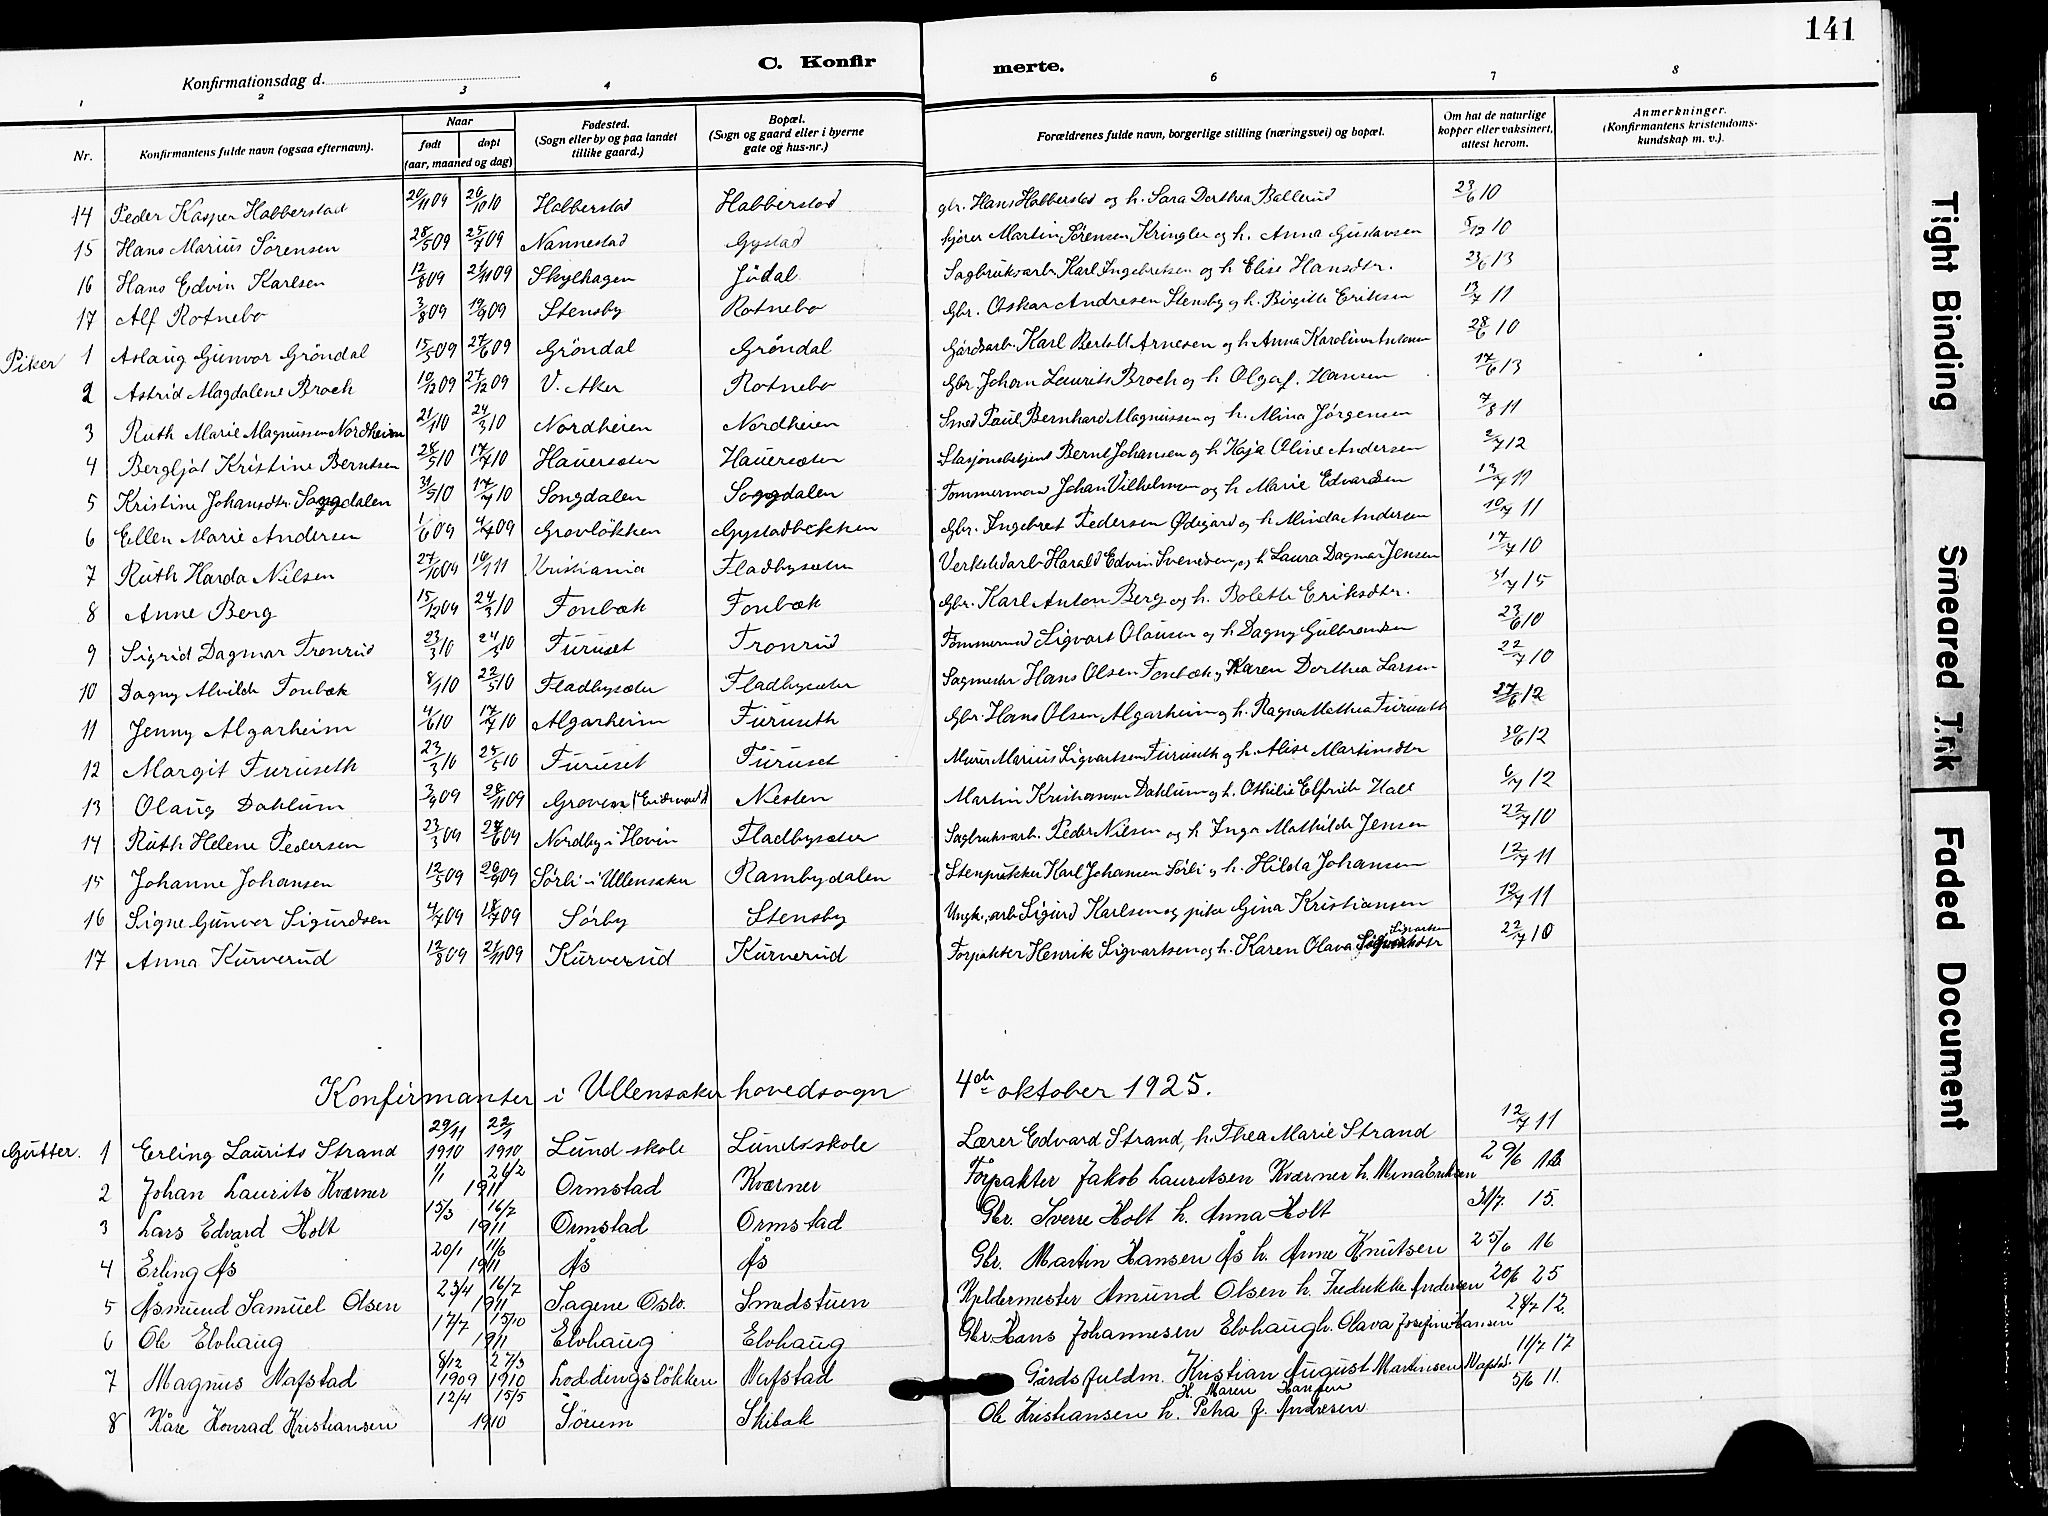 141
C. Konfirmerte.
Konfirmationsdag d.
1 2 3 4 6 7 8
Nr.
Konfirmantens fulde navn (ogsaa efternavn).
Naar
født døpt
(aar, maaned og dag)
Fødested.
(Sogn eller by og paa landet
tillike gaard.)
Bopæl.
(Sogn og gaard eller i byerne
gate og hus-nr.)
Forældrenes fulde navn, borgerlige stilling (næringsvei) og bopæl.
Om hat de naturlige
kopper eller vaksinert,
attest herom.
Anmerkninger.
(Konfirmantens kristendoms-
kundskap m. v.).
14 Peder Kasper Habberstad 20/11 09 26/10 10 Habberstad Habberstad gbr. Hans Habberstad og h. Sara Dorthea Ballerud 23/6 10
15 Hans Marius Sørensen 28/5 09 25/7 09 Nannestad Gystad kjører Martin Sørensen Kringler og h. Anna Gustavsen 5/12 10
16 Hans Edvin Karlsen 12/8 09 21/11 09 Skylhagen Jødal Sagbruksarb. Karl Ingebretsen og h. Elise Hansdtr. 23/6 13
17 Alf Rotnebo 3/8 09 19/9 09 Stensby Rotnebo Gbr. Oskar Andresen Stensby og h. Birgitte Eriksen 13/7 11
Piker 1 Aslaug Gunvor Gröndal 15/5 09 27/6 09 Gröndal Gröndal Gårdsarb. Karl Bertolt Arnesen og h. Anna Karoline Antonsen 28/6 10
2 Astrid Magdalene Broch 10/12 09 27/12 09 V. Aker Rotnebo Gbr. Johan Laurits Broch og h. Olga f. Hansen 17/6 13
3 Ruth Marie Magnussen Nordheim 21/1 10 24/3 10 Nordheien Nordheien Smed Paul Bernhard Magnussen og h. Mina Jørgensen 7/8 11
4 Bergljot Kristine Berntsen 28/5 10 17/7 10 Hauersæter Hauersæter Stasjonsbetjent Bernt Johansen og h. Kaja Oline Andersen 2/7 12
5 Kristine Johansdtr. Songdalen 31/5 10 17/7 10 Songdalen Songdalen Tømmermand Johan Vilhelmsen og h. Marie Edvardsen 13/7 11
6 Ellen Marie Andersen 1/6 09 4/7 09 Gravløkken Gystadbekken Gbr. Ingebret Pedersen Ødegård og h. Minda Andersen 10/7 11
7 Ruth Harda Nilsen 27/10 09 16/1 11 Kristiania Fladbysæter Verkstedarb Harald Edvin Svendsen og h Laura Dagmar Jensen 17/7 10
8 Anne Berg 15/12 09 24/3 10 Fonbæk Fonbæk Gbr. Karl Anton Berg og h. Bolette Eriksdtr. 31/7 15
9 Sigrid Dagmar Tronrud 23/3 10 24/5 10 Furuset Tronrud Tømmermand Sigvart Olausen og h Dagny Gulbrandsen 23/6 10
10 Dagny Alvilde Fonbæk 8/1 10 22/5 10 Fladbysæter Fladbysæter Sagmester Hans Olsen Fonbæk og Karen Dorthea Larsen 22/7 10
11 Jenny Algarheim 4/6 10 17/7 10 Algarheim Furuseth Gbr. Hans Olsen Algarheim og h. Ragna Mathea Furuseth 27/6 12
12 Margit Furuseth 23/3 10 24/5 10 Furuset Furuset Murer Marius Sigvartsen Furuseth og h. Alise Martinsdtr 30/6 12
13 Olaug Dahlum 3/9 09 28/11 09 Groven (Eidsvold) Nesten Martin Kristiansen Dahlum og h. Othilie Elfride Hall 6/7 12
14 Ruth Helene Pedersen 23/3 09 27/6 09 Nordby i Hovin Fladbysæter Sagbruksarb. Peder Nilsen og h Inga Mathilde Jensen 22/7 10
15 Johanne Johansen 12/5 09 20/9 09 Sørli i Ullensaker Rambydalen Stenpukker Karl Johansen Sørli og h. Hilda Johansen 12/7 11
16 Signe Gunvor Sigurdsen 4/7 09 18/7 09 Sørby Stensby Ungk., arb Sigurd Karlsen og pike Gina Kristiansen 12/7 11
17 Anna Kurverud 12/8 09 21/11 09 Kurverud Kurverud Forpakter Henrik Sigvartsen og h. Karen Olava Sigvartsen 22/7 10
Konfirmanter i Ullensaker hovedsogn 4de oktober 1925.
Gutter. 1 Erling Laurits Strand 29/11 1910 22/1 1910 Lund skole Lundsskole Lærer Edvard Strand, h. Thea Marie Strand 12/7 11
2 Johan Laurits Kværner 1/1 26/2 1911 Ormstad Kværner Forpakter Jakob Lauritsen Kværner h. Mina Eriksen 29/6
3 Lars Edvard Holt 15/3 16/7 1911 Ormstad Ormstad Gbr. Sverre Holt h. Anna Holt 31/7. 15.
4 Erling Ås 20/1 11/6 1911 Ås Ås Gbr. Martin Hansen Ås h. Anne Knutsen 25/6 16
5 Åsmund Samuel Olsen 23/4 16/7 1911 Sagene Oslo. Smedstuen Kjeldermester Amund Olsen h. Fredrikke Andersen 20/6 25
6 Ole Elvhaug 17/7 15/10 1911 Elvhaug Elvhaug Gbr. Hans Johannesen Elvhaug h. Olava Josefine Hansen 24/7 12.
7 Magnus Nafstad 8/12 1909 27/3 1910 Loddingsløkken Nafstad Gårdsfuldm. Kristian August Martinsen Nafstad. 11/7 17
H. Maren Hansen
8 Kåre Konrad Kristiansen 12/4 15/5 1910 Sørum Skibak Ole Kristiansen h. Petra f. Andresen 5/6 11.
Tight Binding
Smeared Ink
Faded Document